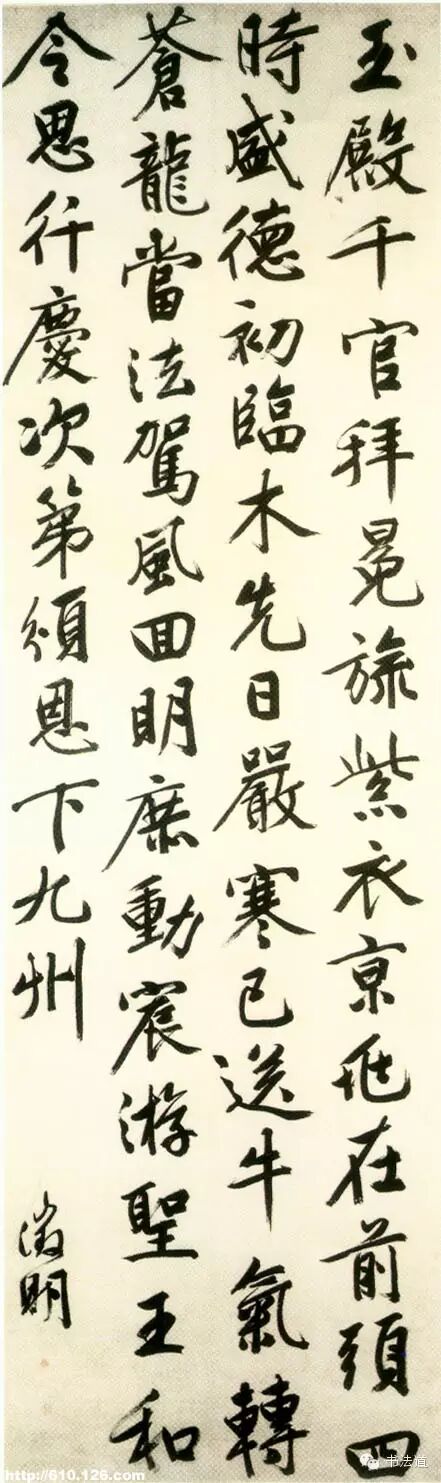 玉殿千官拜冕旒紫衣京兆在前頭四
時盛德初臨木先日嚴寒已送牛氣轉
蒼龍當法駕風回明庶動宸游聖王和
令思行慶次第頒恩下九州
徵明
http://610.126.com
书法道